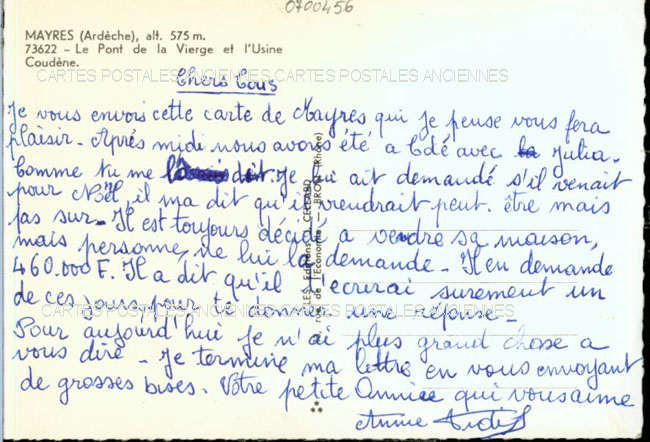 0700456
MAYRES (Ardèche), alt. 575 m.
73622 - Le Pont de la Vierge et l'Usine
Coudène.
CARTES POSTALES ANCIENNES CARTES POSTALES ANCIENNES
Chers Tous
Je vous envois cette carte de Mayres qui je pense vous fera
plaisir. Après midi nous avons été a côté avec la Julia.
Comme tu me dit. Je lui ait demandé s'il venait
pour Noël, il ma dit qu'il viendrait peut. être mais
pas sur. Il est toujours décidé a vendre sa maison,
mais personne, ne lui la demande. Il en demande
460.000 F. Il a dit qu'il t'ecrirai surement un
de ces jours pour te donner une réponse.
CARTES POSTALES ANCIENNES CARTES POSTALES ANCIENNES
Pour aujourd'hui je n'ai plus grand chose a
vous dire. Je termine ma lettre en vous envoyant
de grosses bises. Votre petite Annie qui vous aime
Annie
Editions CELLARD
de l'Economie — BRON (Rhône)